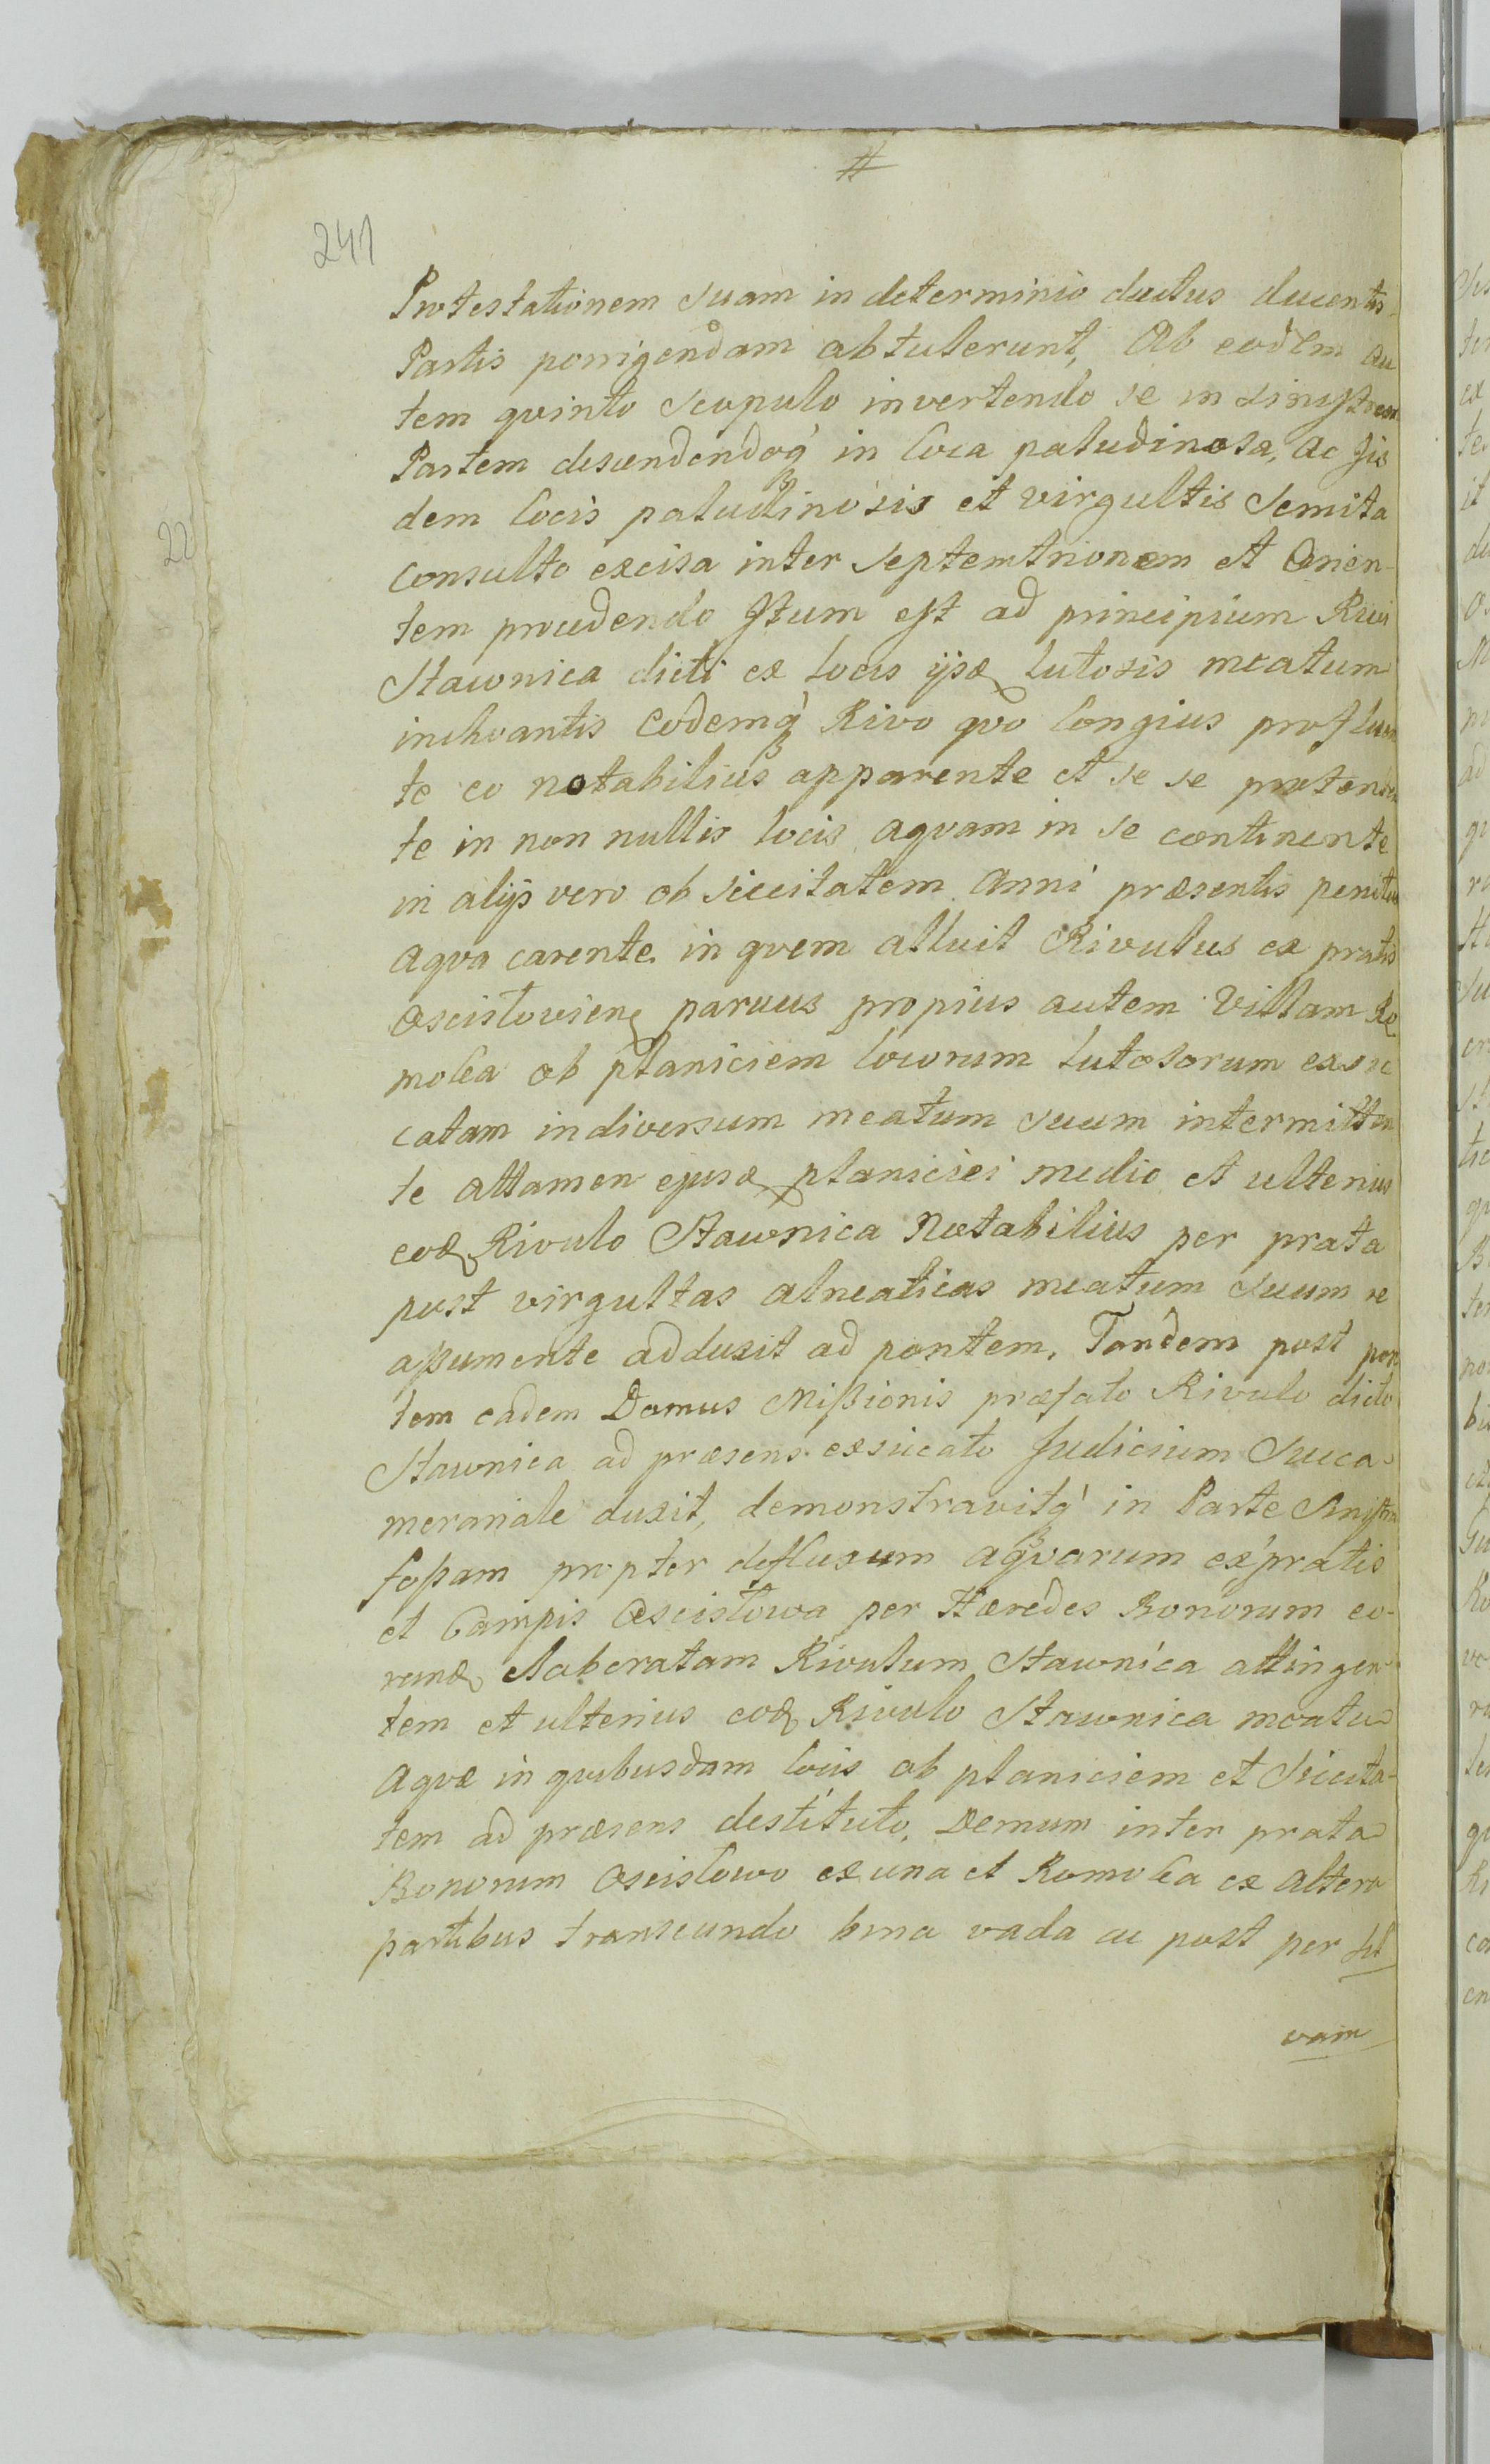 #
241
Protestationem suam in determinio ductus ducentis
Partis porrigendam abtulerunt, Ab eodem au
tem qvinto Scopulo invertendo se in sinistram
Partem descendendoq́ in loca paludinosa, ac Jis
dem locis paludinosis et virgultis Semita
22
consulto excisa inter Septemtrionem et Orien-
tem procedendo Itum est ad principium Rivi
Stawnica dicti ex locis ijsd lutosis meatum
inchoantis Eodemq́ Rivo qvo longius profluen
te eo notabilius apparente et se se protenden
te in non nullis locis aqvam in se continente
in alijs vero ob siccitatem Anni præsentis penitus
aqva carente in qvem alluit Rivulus ex pratis
Oscisłovien parvus propius autem Villam Ro
molea ob planiciem locorum lutosorum exsic
catam in diversum meatum suum intermitten
te attamen ejusd planiciei medio et ulterius
eod Rivulo Stawnica Notabilius per prata
post virgultas alneaticas meatum suum re
aßumente adduxit ad pontem. Tandem post pon
tem eadem Domus Mißionis præfato Rivulo dicto
Stawnica ad præsens exsiccato Judicium Succa-
merariale duxit, demonstravitq́ in Parte Sinistra
foßam propter defluxum aqvarum ex pratis
et Campis Oscisłowa per Hæredes Bonorum eo-
rund elaboratam Rivulum Stawnica attingen-
tem et ulterius eod Rivulo Stawnica meatu
aqvæ in qvibusdam locis ob planiciem et Siccita-
tem ad præsens destituto. Demum inter prata
Bonorum Oscisłowo ex una et Romolea ex altera
partibus transeundo bina vada ac post per sil
vam